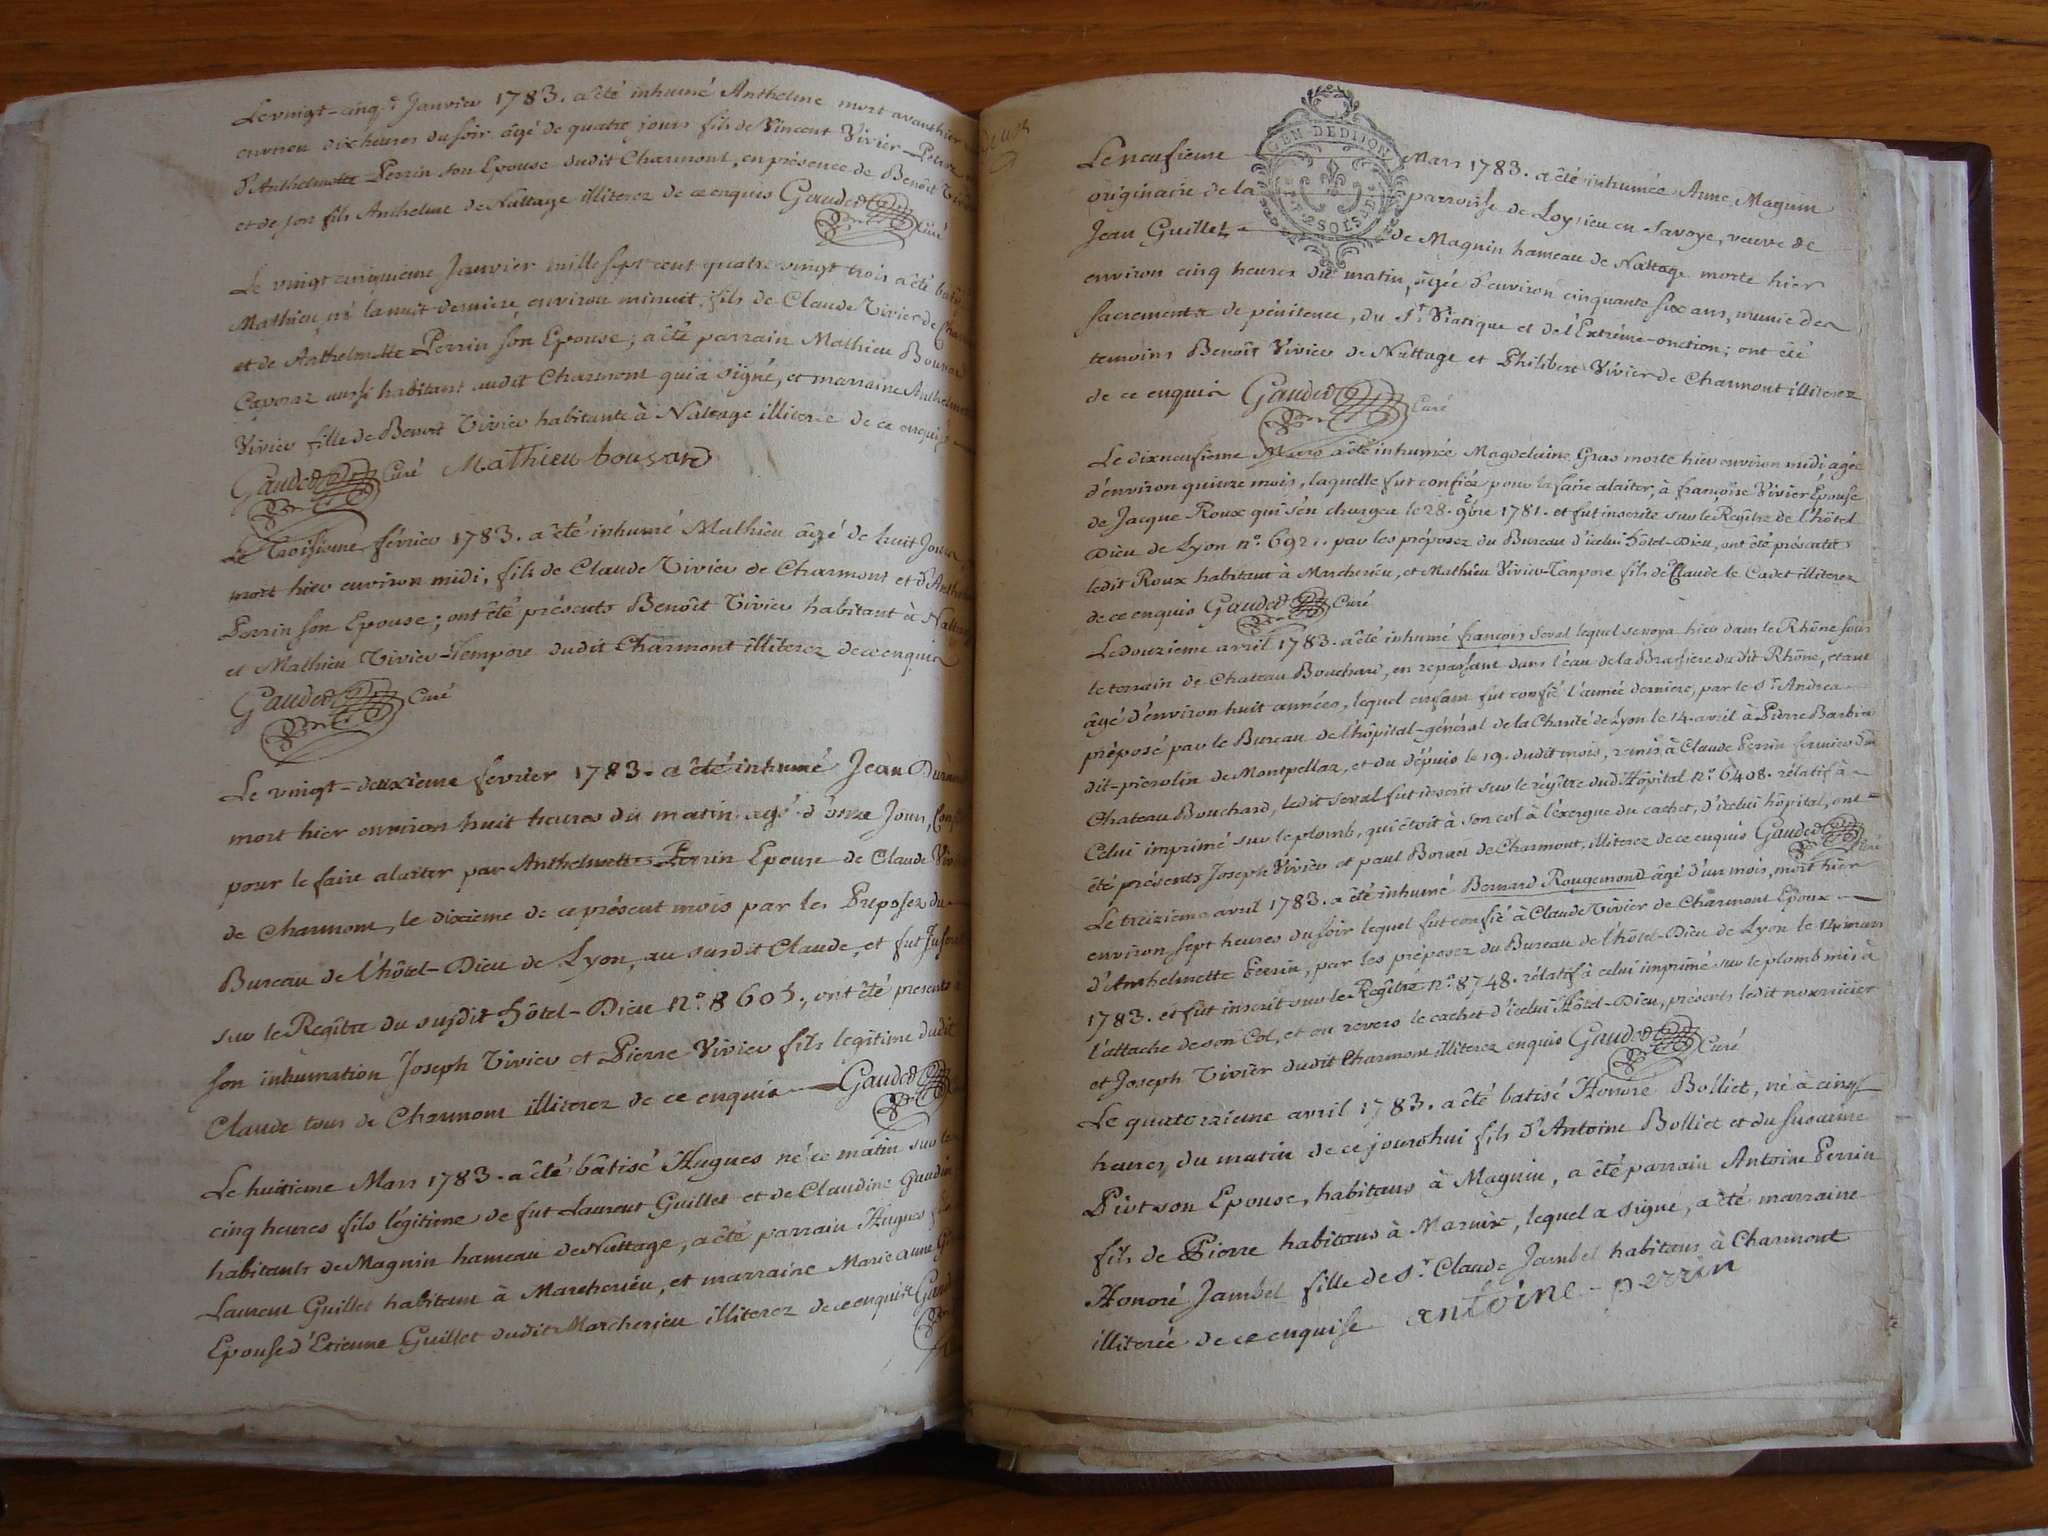 Le vingt-cinq.e Janvier 1783. a été inhumé Anthelme mort avanthier
environ dix heures du soir âgé de quatre jours fils de Vincent Vivier-
d'Anthelmette Perrin son Epouse dudit Charmont, en présence de Benoît
et de son fils Anthelme de Nattage illiterez de ce enquis Gaudet Curé
Le vingt cinquieme Janvier mille sept cent quatre vingt trois a été
Mathieu, né la nuit derniere environ minuit, fils de Claude Vivier de
et de Anthelmette Perrin son Epouse; a été parrain Mathieu
aussi habitant audit Charmont qui a signé, et marraine
Vivier fille de Benoit Vivier habitante à Nattage illiterée de ce enquise
Gaudet Curé Mathieu bouvard
Le Troisieme février 1783. a été inhumé Mathieu âgé de huit Jours
mort hier environ midi, fils de Claude Vivier de Charmont et
Perrin son Epouse; ont été présents Benoît Vivier habitant à
et Mathieu Vivier-Tempore dudit Charmont illiterez de ce enquis
Gaudet Curé
Le vingt-deuxieme fevrier 1783. a été inhumé Jean
mort hier environ huit heures du matin agé d'onze Jours,
pour le faire alaiter par Anthelmette Perrin Epouse de Claude
de Charmont, le dixieme de ce présent mois par les Préposez du
Bureau de l'hôtel-Dieu de Lyon, au susdit Claude, et fut
sur le Regître du susdit hôtel-Dieu n.o 8605., ont été presents à
son inhumation Joseph Vivier et Pierre Vivier fils legitime dudit
Claude tous de Charmont illiterez de ce enquis Gaudet
Le huitieme Mars 1783. a été bâtisé Hugues né ce matin sur les
cinq heures fils légitime de fut Laurent Guillet et de Claudine
habitants de Magnin hameau de Nattage, a été parrain Hugues
Laurent Guillet habitant à Marcherieu, et marraine Marie anne
Epouse d'Etienne Guillet dudit Marcherieu illiterez de ce enquis
Le neufieme Mars 1783. a été inhumée Anne Magnin
originaire de la parroisse de Loysieu en Savoye, veuve de
Jean Guillet de Magnin hameau de Nattage morte hier
environ cinq heures du matin, agée d'environ cinquante six ans, munie des
sacrements de pénitence, du S.t Viatique et de l'Extrême-onction; ont été
temoins Benoît Vivier de Nattage et Philibert Vivier de Charmont illiterez
de ce enquis Gaudet Curé
GEN DEDITION
2 SOLS
Le dixneufieme Mars a été inhumée Magdelaine Gras morte hier environ midi agée
d'environ quinze mois, laquelle fut confiée pour la faire alaiter, à françoise Vivier Epouse
de Jacque Roux qui s'en chargea le 28. 9bre 1781. et fut inscrite sur le Regître de l'hôtel
Dieu de Lyon n.o par les préposez du Bureau d'icelui hôtel-Dieu, ont été présents
ledit Roux habitant à Marcherieu, et Mathieu Vivier-Tempore fils de Claude le Cadet illiterez
de ce enquis Gaudet Curé
Le douzieme avril 1783. a été inhumé françois Seval lequel se noya hier dans le Rhône sous
le terrain de Chateau Bouchard, en repassant dans l'eau de la Brassiere du dit Rhône, etant
âgé d'environ huit années, lequel enfant fut confié l'année derniere, par le S.r Andrea
préposé par le Bureau de l'hôpital-général de la Charité de Lyon le 14. avril à Pierre Barbin
dit-pierolin de Montpellaz, et du dépuis le 19. dudit mois, remis à Claude Perrin fermier du
Chateau Bouchard, ledit Seval fut inscrit sur le régître dud. Hôpital n.o 6408. rélatif à
Celui imprimé sur le plomb, qui étoit à son col à l'exergue du cachet, d'icelui hôpital, ont
été présents Joseph Vivier et paul de Charmont, illiterez de ce enquis Gaudet Curé
Le treizieme avril 1783. a été inhumé Bernard Rougemond âgé d'un mois, mort hier
environ sept heures du soir lequel fut confié à Claude Vivier de Charmont Epoux
d'Anthelmette Perrin, par les préposez du Bureau de l'hôtel-Dieu de Lyon le 14 mars
1783. et fut inscrit sur le Regître n.o 8748. rélatif à celui imprimé sur le plomb mis à
l'attache de son Col, et au revers le cachet d'icelui Hôtel-Dieu, présents ledit nourricier
et Joseph Vivier dudit Charmont illiterez enquis Gaudet Curé
Le quatorzieme avril 1783. a été batisé Honoré Bolliet, né à cinq
heures du matin de ce jourdhui fils d'Antoine Bolliet et du Susanne
Pivt son Epouse, habitans à Magnin, a été parrain Antoine Perrin
fils de Pierre habitans à Marnix, lequel a signé, a été marraine
Honoré Jambel fille de S.r Claude Jambel habitans à Charmont
illiterée de ce enquise antoine - perrin